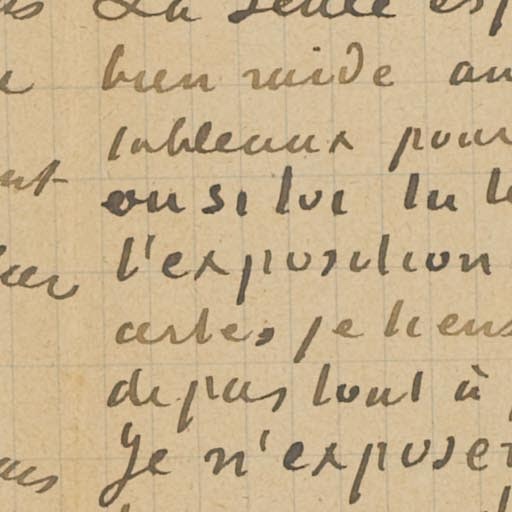 La seule esp
bien raide au
tableaux pour
ou si toi tu t
l'exposition
certes je tiens
de pas tout à
Je n'exposer